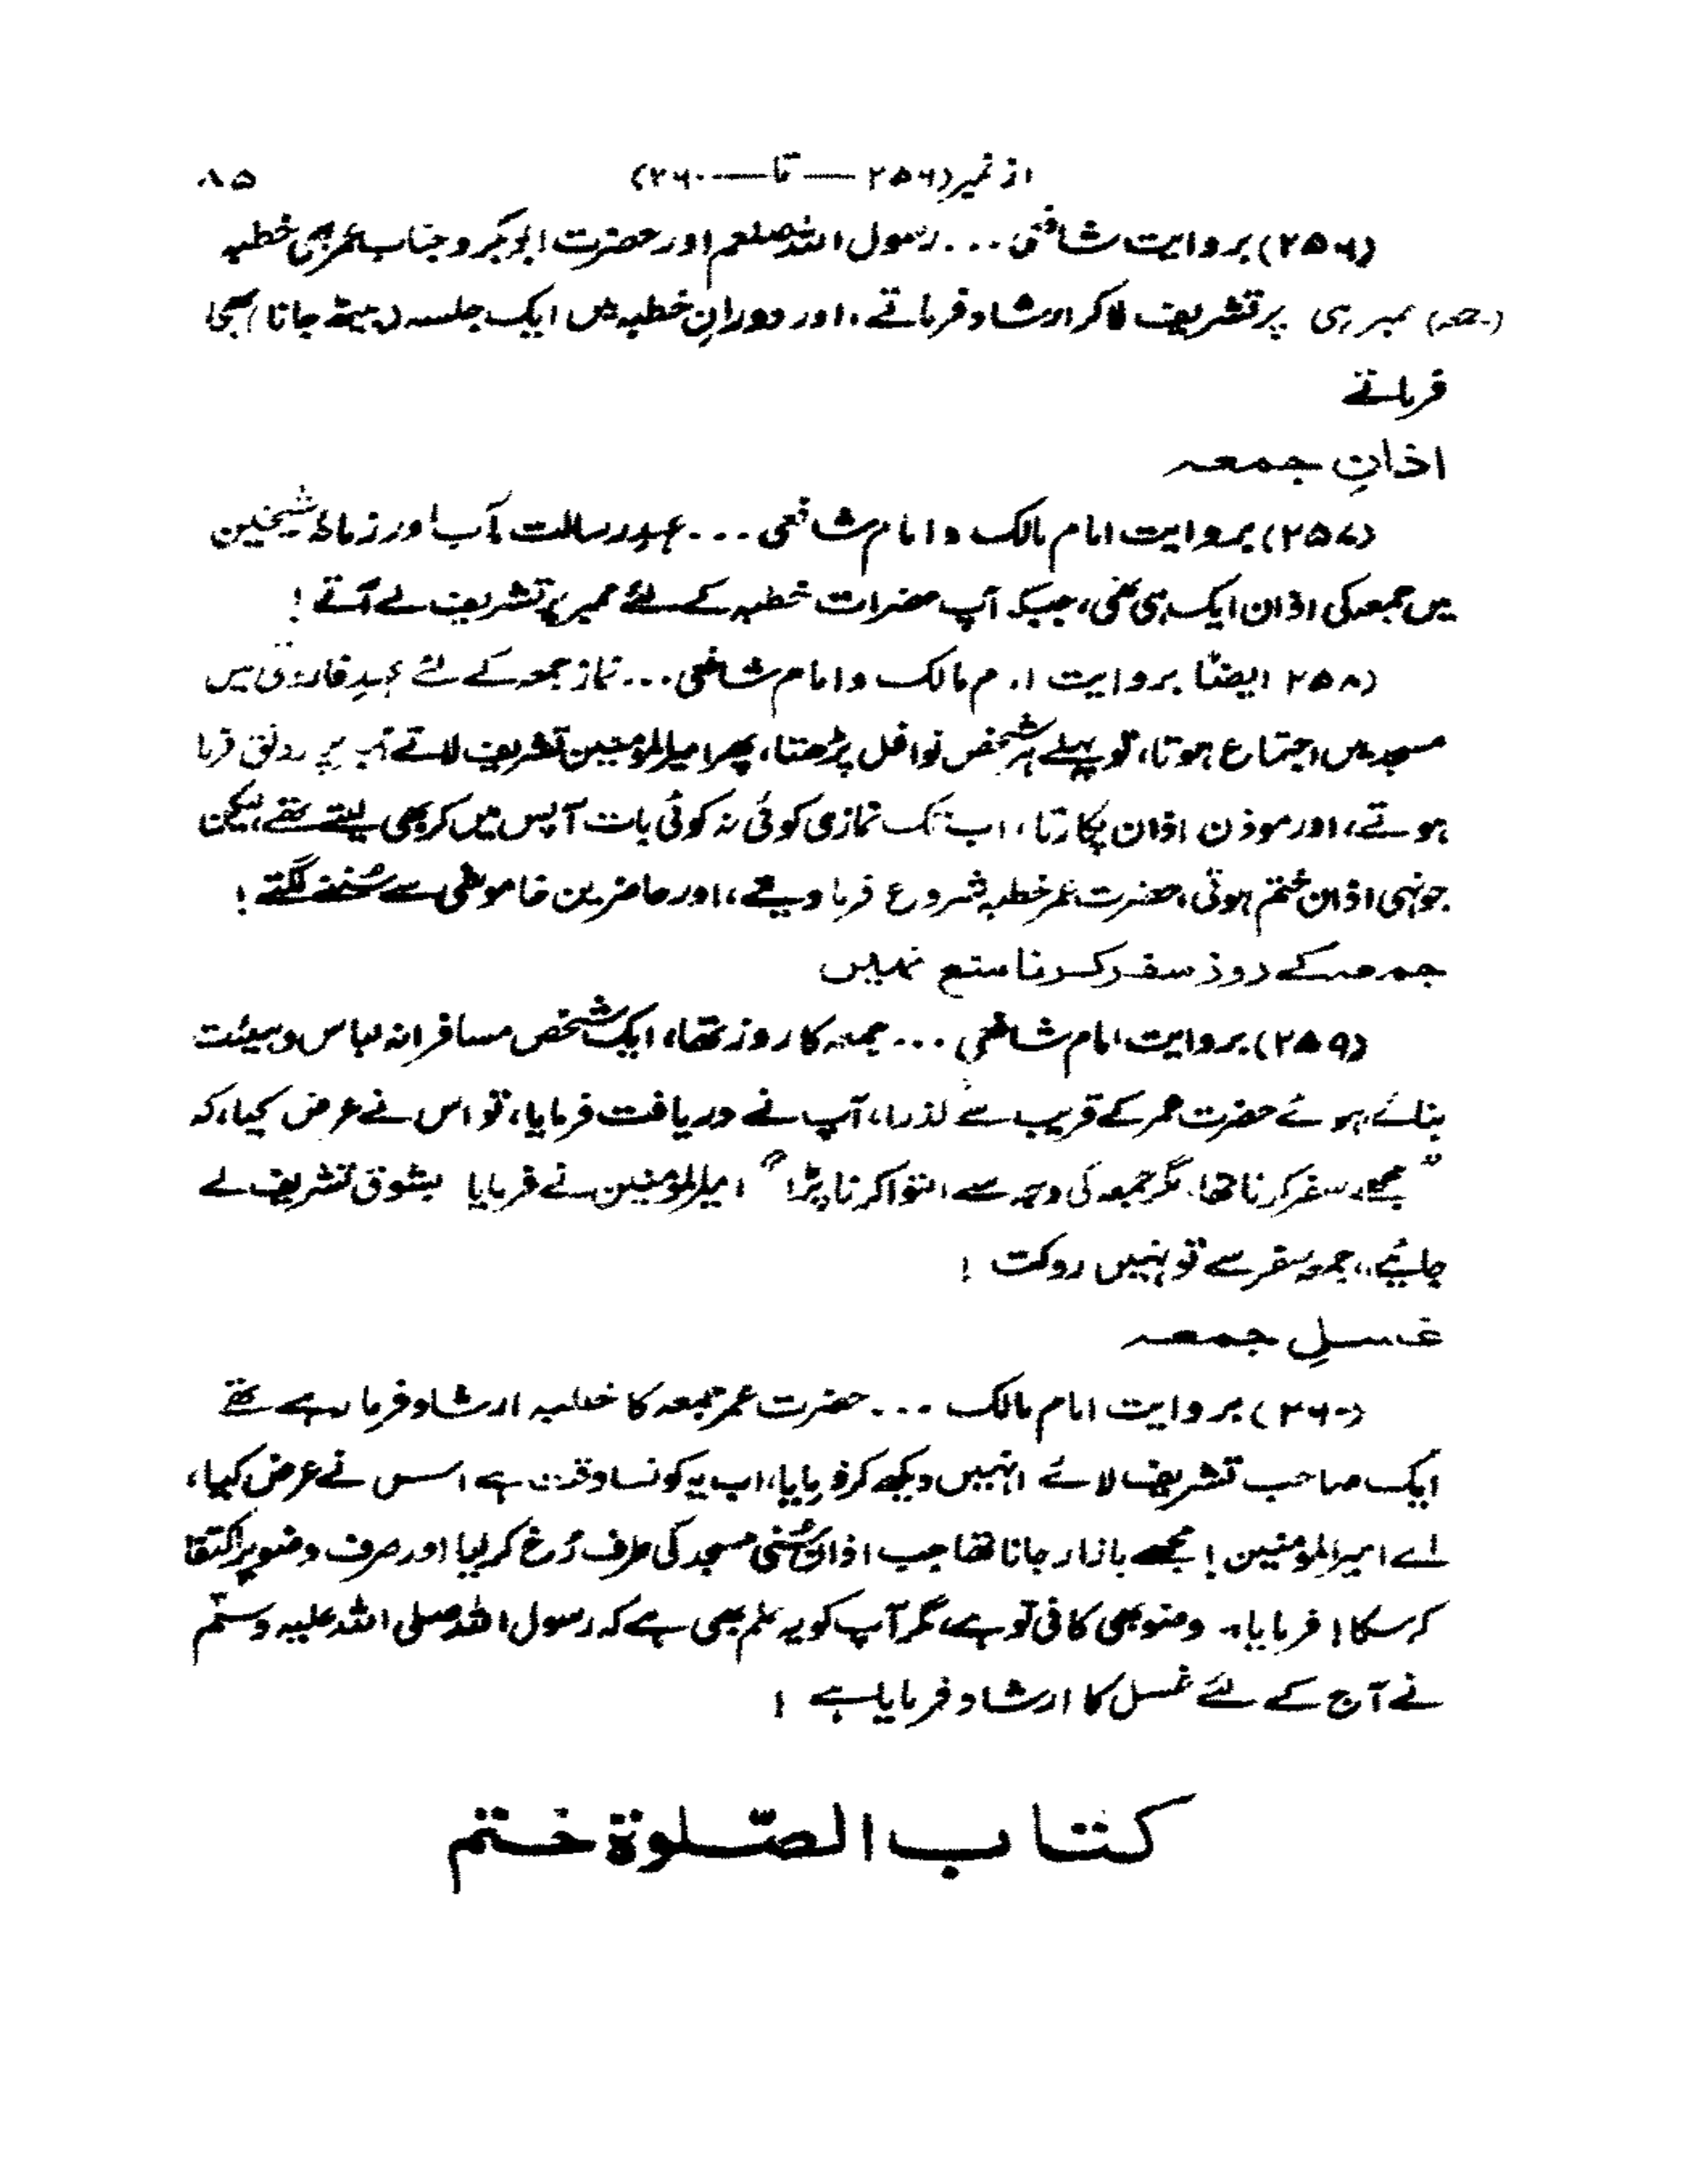 از نمبر (۲۵۶ — تا — ۲۶۰) ۸۵
(۲۵۶) بروایت شافعی ... رسول اللہ صلعم اور حضرت ابوبکر و جناب عمر بھی خطبہ
(جمعہ) ممبر ہی پر تشریف لاکر ارشاد فرماتے، اور دورانِ خطبہ میں ایک جلسہ (بیٹھ جانا) بھی
فرماتے
اذانِ جمعہ
(۲۵۷) بروایت امام مالک و امام شافعی ... عہدِ رسالت مآب اور زمانۂ شیخین
میں جمعہ کی اذان ایک ہی تھی، جبکہ آپ حضرات خطبہ کے لئے ممبر پر تشریف لے آتے !
(۲۵۸ ایضاً بروایت امام مالک و امام شافعی ... نماز جمعہ کے لئے عہدِ فاروقی میں
مسجد میں اجتماع ہوتا، تو پہلے ہر شخص نوافل پڑھتا، پھر امیرالمؤمنین تشریف لاتے پر رونق فرما
ہوتے، اور موذن اذان پکارتا، اب تک نمازی کوئی نہ کوئی بات آپس میں کر بھی لیتے تھے، لیکن
جونہی اذان ختم ہوتی، حضرت عمر خطبہ شروع فرما دیتے، اور حاضرین خاموشی سے سُننے لگتے !
جمعہ کے روز سفر کرنا منع نہیں
(۲۵۹) بروایت امام شافعی ... جمعہ کا روز تھا، ایک شخص مسافرانہ لباس و ہیئت
بنائے ہوئے حضرت عمر کے قریب سے گذرا، آپ نے دریافت فرمایا، تو اس نے عرض کیا، کہ
"مجھے سفر کرنا تھا، مگر جمعہ کی وجہ سے التوا کرنا پڑا" امیرالمؤمنین نے فرمایا بشوق تشریف لے
جایئے، جمعہ سفر سے تو نہیں روکت !
غسلِ جمعہ
(۲۶۰) بروایت امام مالک ... حضرت عمر جمعہ کا خطبہ ارشاد فرما رہے تھے
ایک صاحب تشریف لائے انہیں دیکھ کر فرمایا، اب یہ کونسا وقت ہے اس نے عرض کیا،
اے امیرالمؤمنین ! مجھے بازار جانا تھا جب اذان سُنی مسجد کی طرف رُخ کر لیا اور صرف وضو پر اکتفا
کر سکا ! فرمایا۔ وضو بھی کافی تو ہے، مگر آپ کو یہ علم بھی ہے کہ رسول اللہ صلی اللہ علیہ وسلّم
نے آج کے لئے غسل کا ارشاد فرمایا ہے !
کتاب الصّلوة ختم